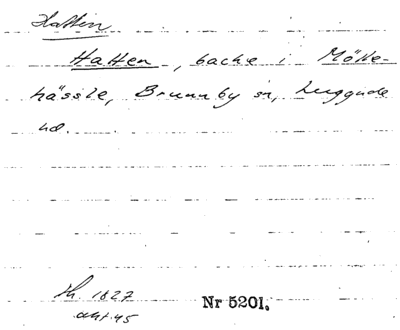 Hatten
Hatten, backe i Mölle-
hässle, Brunnby sn, Luggude
hd.
Lh. 1827
akt 45
Nr 5201.